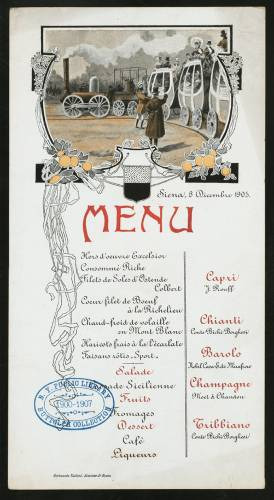 Siena, 8 Dicembre 1905.
MENU
Hors d'oeuvre Excelsior
Consommé Riche
Filets de Soles d'Ostende
Colbert
Cœur filet de Bœuf
à la Richelieu
Chaud-froid de volaille
en Mont Blanc
Haricots frais à l'écarlate
Faisans rôtis "Sport"
Salade
Sicilienne
Fruits
Fromages
Dessert
Café
Liqueurs
Capri
J. Rouff
Chianti
Conte Bichi Borghesi
Barolo
Champagne
Moet & Chandon
Trebbiano
Conte Bichi Borghesi
N. Y. PUBLIC LIBRARY
1900-1907
BUTTOLPH COLLECTION